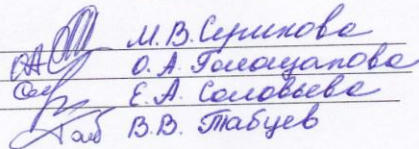 М.В. Сушкова
О.А. Голощапова
Е.А. Соловьева
В.В. Табцев